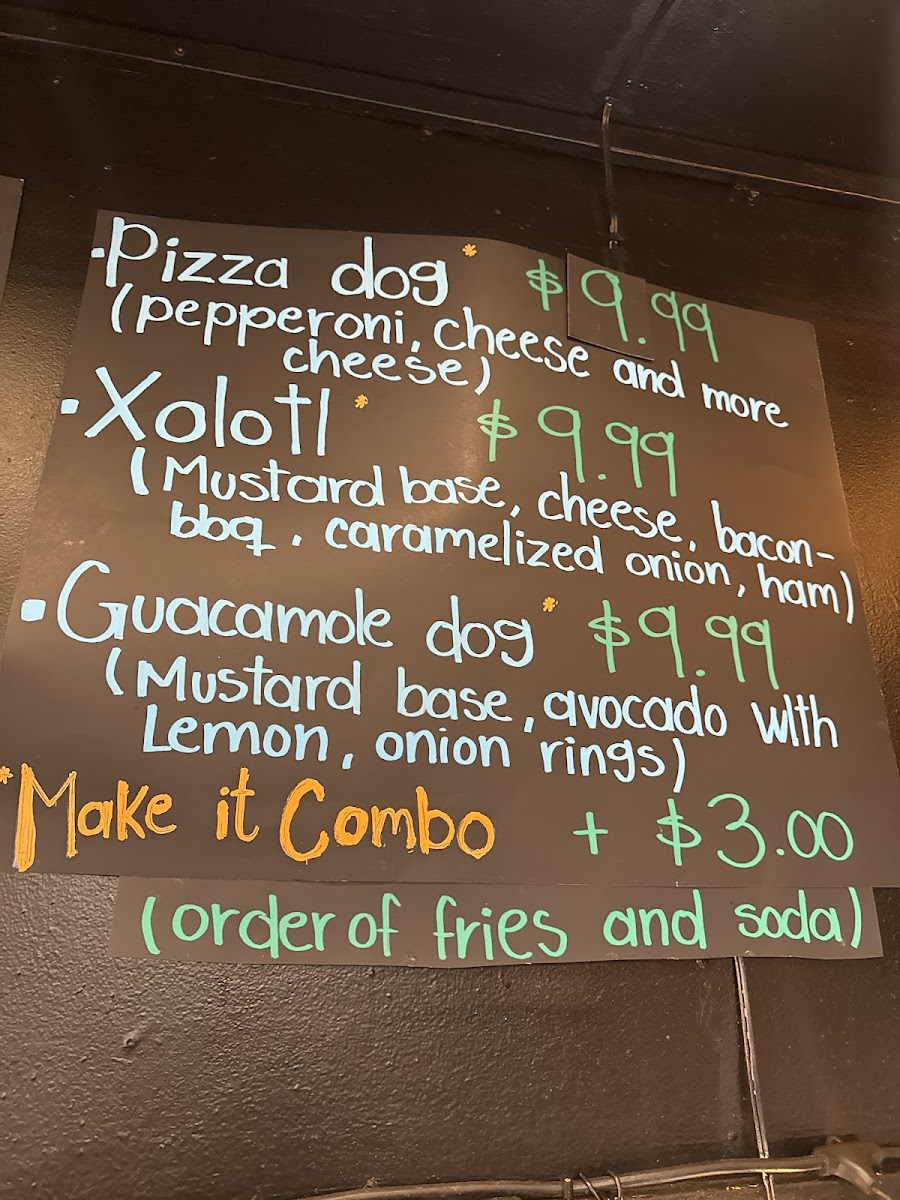 ▪Pizza dog* $9.99
(pepperoni, cheese and more
cheese)
▪Xolotl* $9.99
(Mustard base, cheese, bacon-
bbq, caramelized onion, ham)
▪Guacamole dog* $9.99
(Mustard base, avocado with
Lemon, onion rings)
*Make it Combo + $3.00
(order of fries and soda)